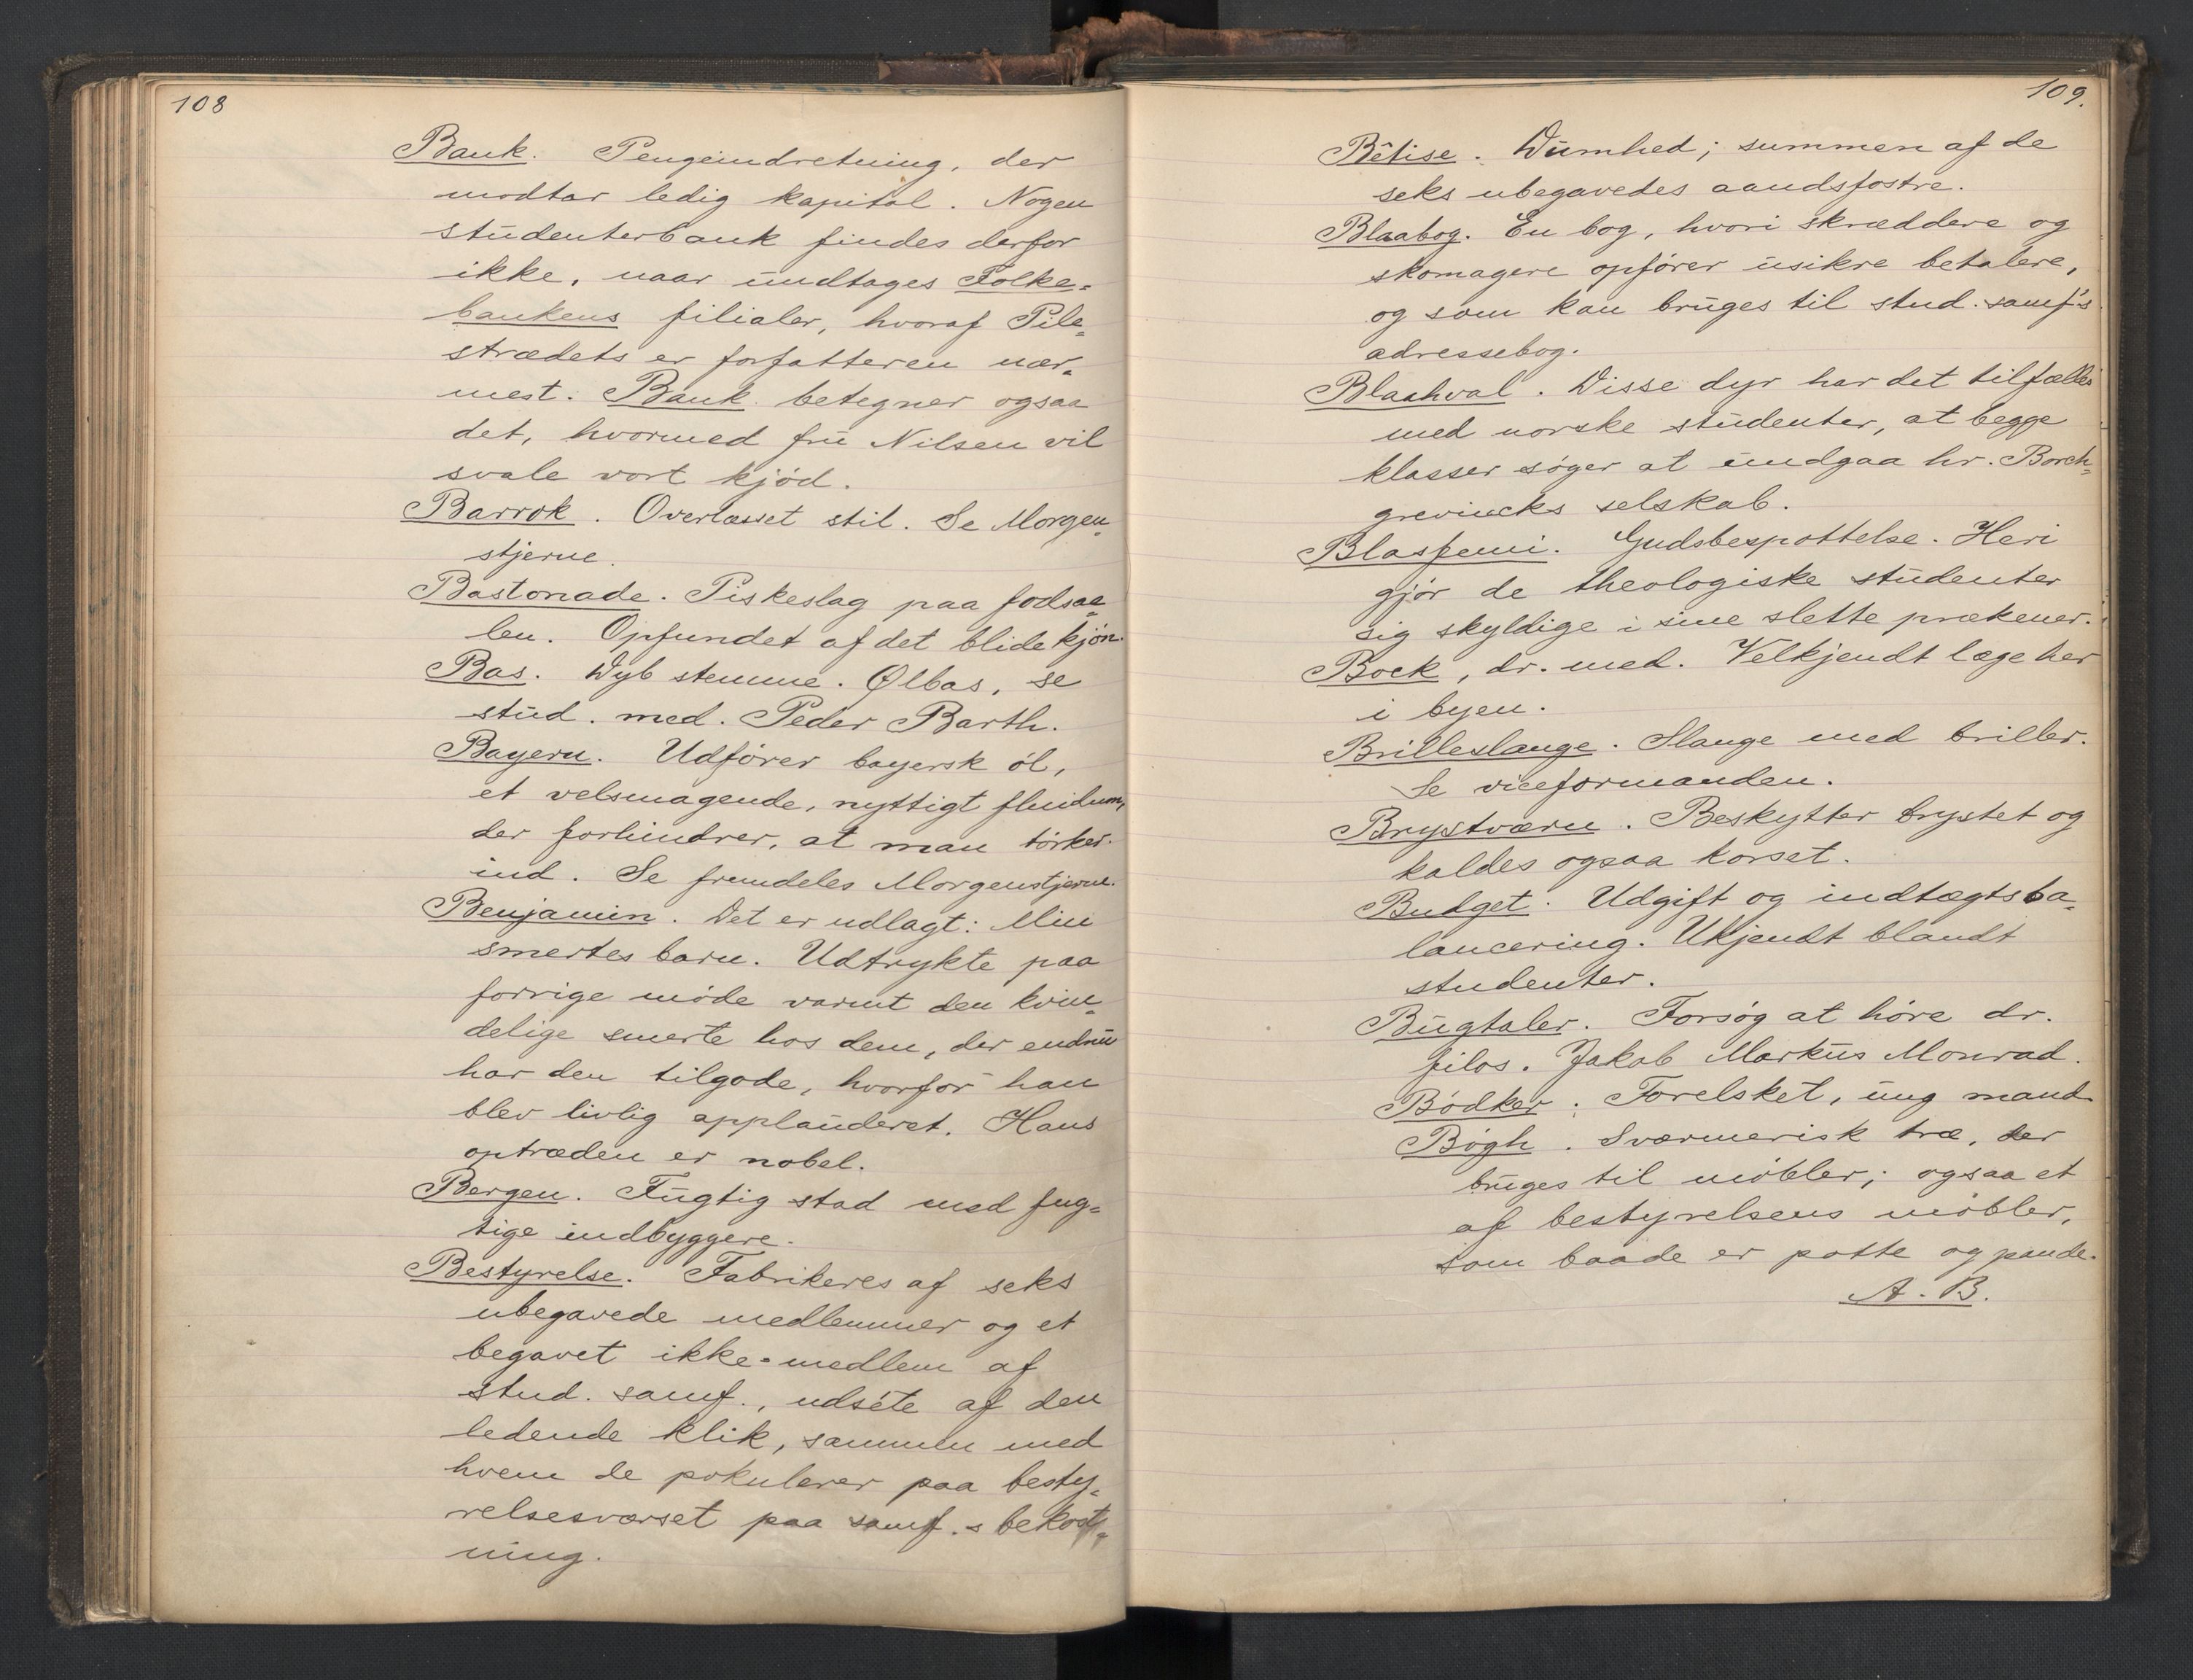 108
Bank. Pengeindretning, der
modtar ledig kapital. Nogen
studenterbank findes derfor
ikke, naar undtages Folke-
bankens filialer, hvoraf Pile-
strædets er forfatteren nær-
mest. Bank betegner ogsaa
det, hvormed fru Nilsen vil
svale vort kjød.
Barrok. Overlæsset stil. Se Morgen-
stjerne.
Bastonade. Piskeslag paa fodsaa-
len. Opfundet af det blide kjøn.
Bas. Dyb stemme. Ølbas, se
stud. med. Peder Barth.
Bayern. Udfører bayersk øl,
et velsmagende, nyttigt fluidum,
der forhindrer, at man tørker
ind. Se fremdeles Morgenstjerne.
Benjamin. Det er udlagt: Min
smertes barn. Udtrykte paa
forrige møde varmt den kvin-
delige smerte hos dem, der endnu
har den tilgode, hvorfor han
blev livlig applauderet. Hans
optræden er nobel.
Bergen. Fugtig stad med fug-
tige indbyggere.
Bestyrelse. Fabrikeres af seks
ubegavede medlemmer og et
begavet ikke-medlem af
stud. samf., udséte af den
ledende klik, sammen med
hvem de pokulerer paa besty-
relsesværset paa samf.s bekost-
ning.
109.
Bêtise. Dumhed; summen af de
seks ubegavedes aandsfostre.
Blaabog. En bog, hvori skræddere og
skomagere opfører usikre betalere,
og som kan bruges til stud. samf's
adressebog.
Blaahval. Disse dyr har det tilfælles
med norske studenter, at begge
klasser søger at undgaa hr. Borch-
grevincks selskab.
Blasfemi. Gudsbespottelse. Heri
gjør de theologiske studenter
sig skyldige i sine slette prækener.
Bock, dr. med. Velkjendt læge her
i byen.
Brilleslange. Slange med briller.
Se viceformanden.
Brystværn. Beskytter brystet og
kaldes ogsaa korset.
Budget. Udgift og indtægtsba-
lancering. Ukjendt blandt
studenter.
Bugtaler. Forsøg at høre dr.
filos. Jakob Markus Monrad.
Bødker. Forelsket, ung mand.
Bøgh. Sværmerisk træ, der
bruges til møbler; ogsaa et
af bestyrelsens møbler,
som baade er potte og pande.
A. B.